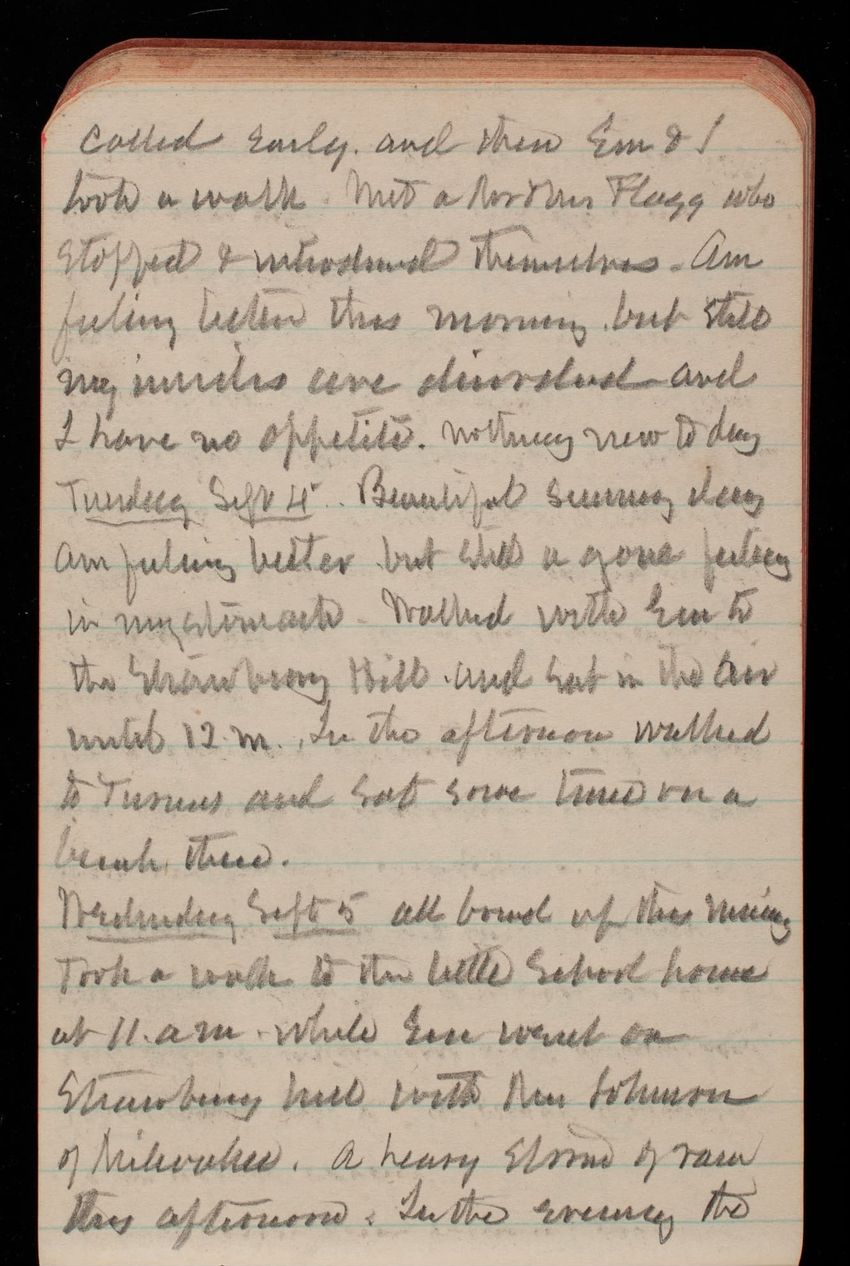 called early. and then Em & I
took a walk. Met a Mr & Mrs Flagg who
stopped & introduced themselves. Am
feeling better this morning but still
my insides are disordered and
I have no appetite. nothing new to day
Tuesday Sept 4. Beautiful sunny day
am feeling better but still a gone feeling
in my stomach. Walked with Em to
the Strawberry Hill and sat in the air
until 12 m. In the afternoon walked
to Turners and sat some time on a
bench there.
Wednesday Sept 5 all bound up this morning
Took a walk to the little School house
at 11. a m. while Em went on
Strawberry hill with Mrs Johnson
of Milwaukee. A heavy storm of rain
this afternoon. In the evening the